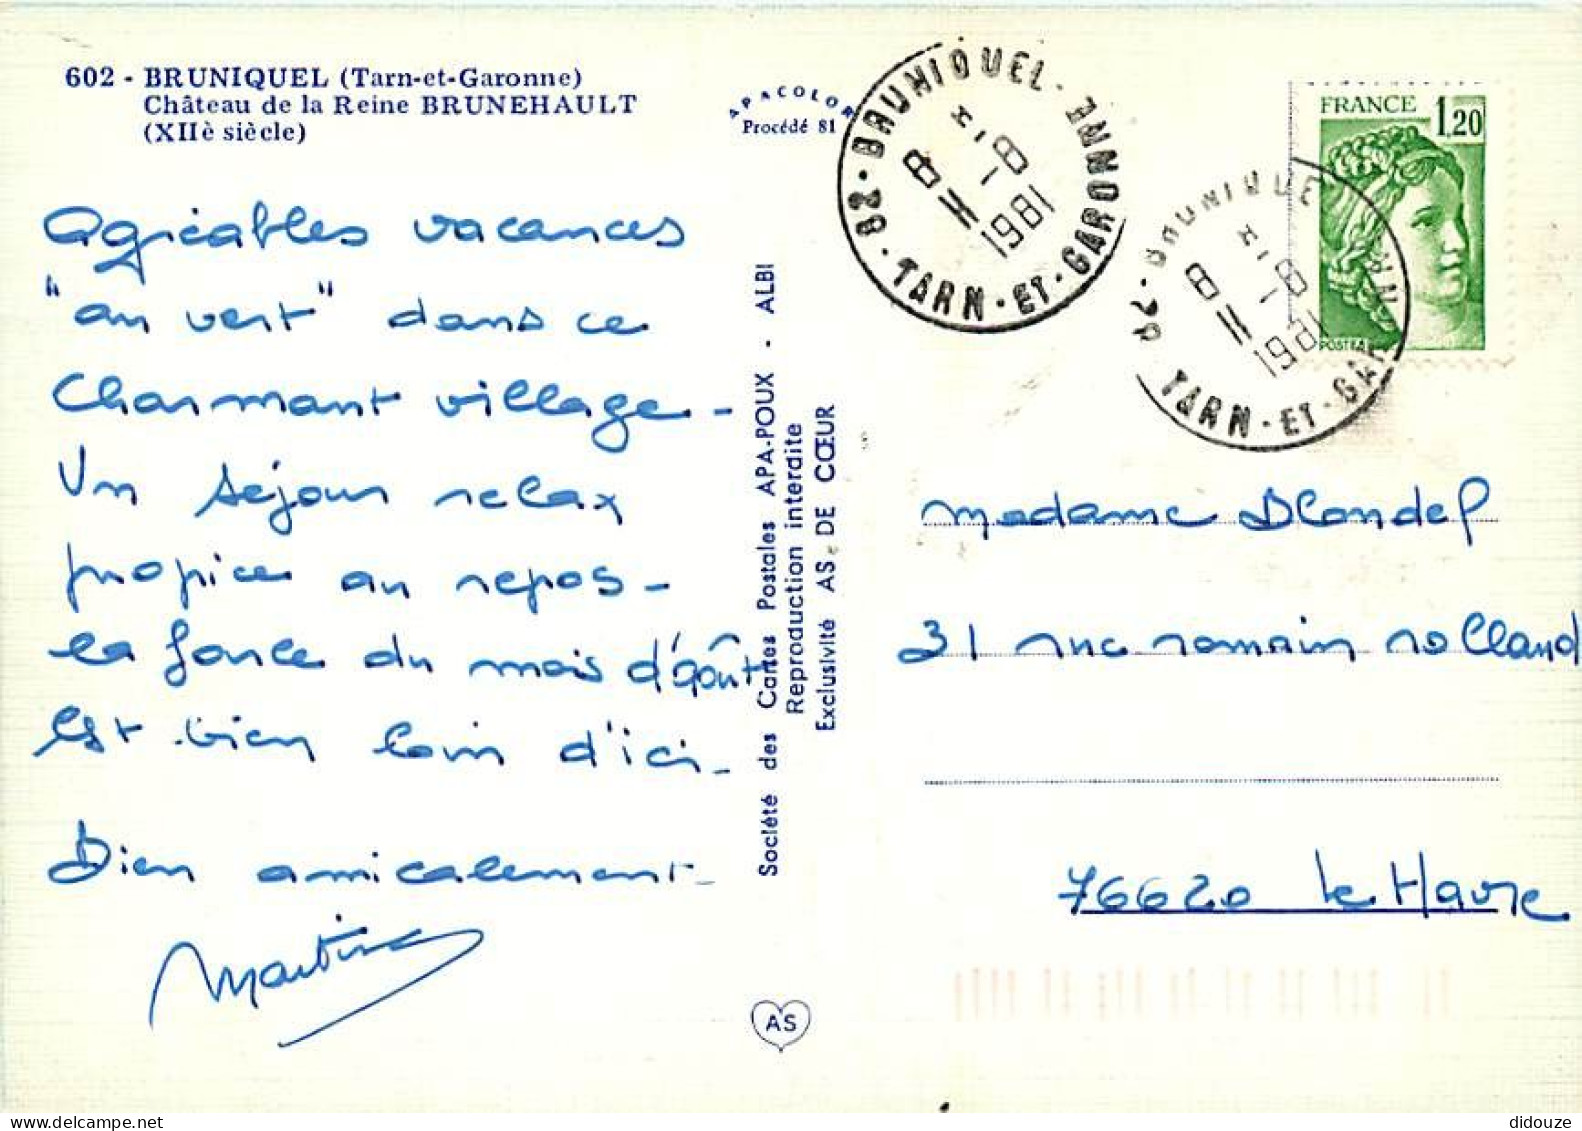 602 - BRUNIQUEL (Tarn-et-Garonne)
Château de la Reine BRUNEHAULT
(XIIè siècle)
APACOLOR
Procédé 81
Agréables vacances
"au vert" dans ce
charmant village -
Un séjour relax
propice au repos -
la foule du mois d'août
est bien loin d'ici -
Bien amicalement -
Martine
Société des Cartes Postales APA-POUX - ALBI
Reproduction interdite
Exclusivité AS DE CŒUR
AS
BRUNIQUEL
TARN-ET-GARONNE
1981
FRANCE 1,20
BRUNIQUE
TARN-ET-GAR
1981
Madame Blondel
31 rue romain rolland
76620 Le Havre
didouze